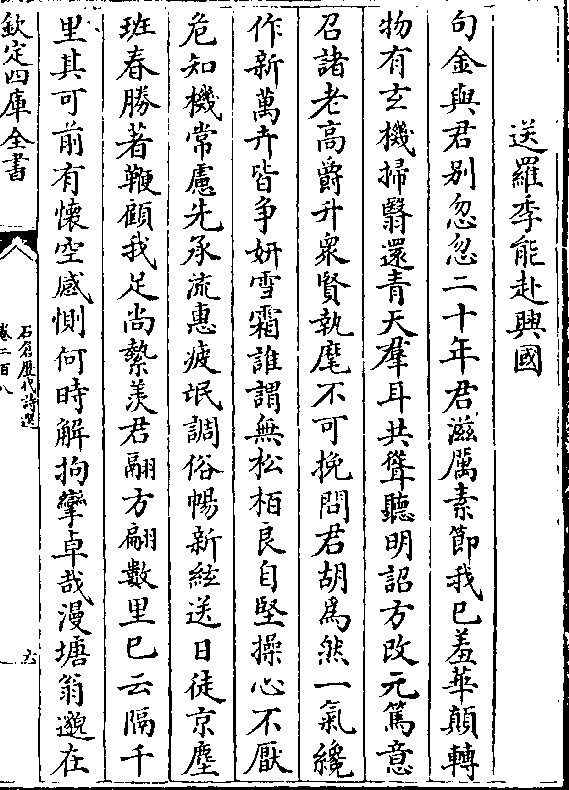 送羅季能赴興國
句金與君别忽忽二十年君滋厲素節我已羞華顛轉
物有玄機掃翳還青天羣耳共聳聽明詔方改元篤意
召諸老高爵升衆賢執麾不可挽問君胡為然一氣纔
作新萬卉皆争妍雪霜誰謂無松栢良自堅操心不厭
危知機常慮先承流惠疲氓調俗暢新絃送日徒京塵
班春勝著鞭顧我足尚縶羡君翮方翩數里已云隔千
里其可前有懷空感惻何時解拘攣卓哉漫塘翁邈在
欽定四庫全書
石倉歷代詩選
卷二百八